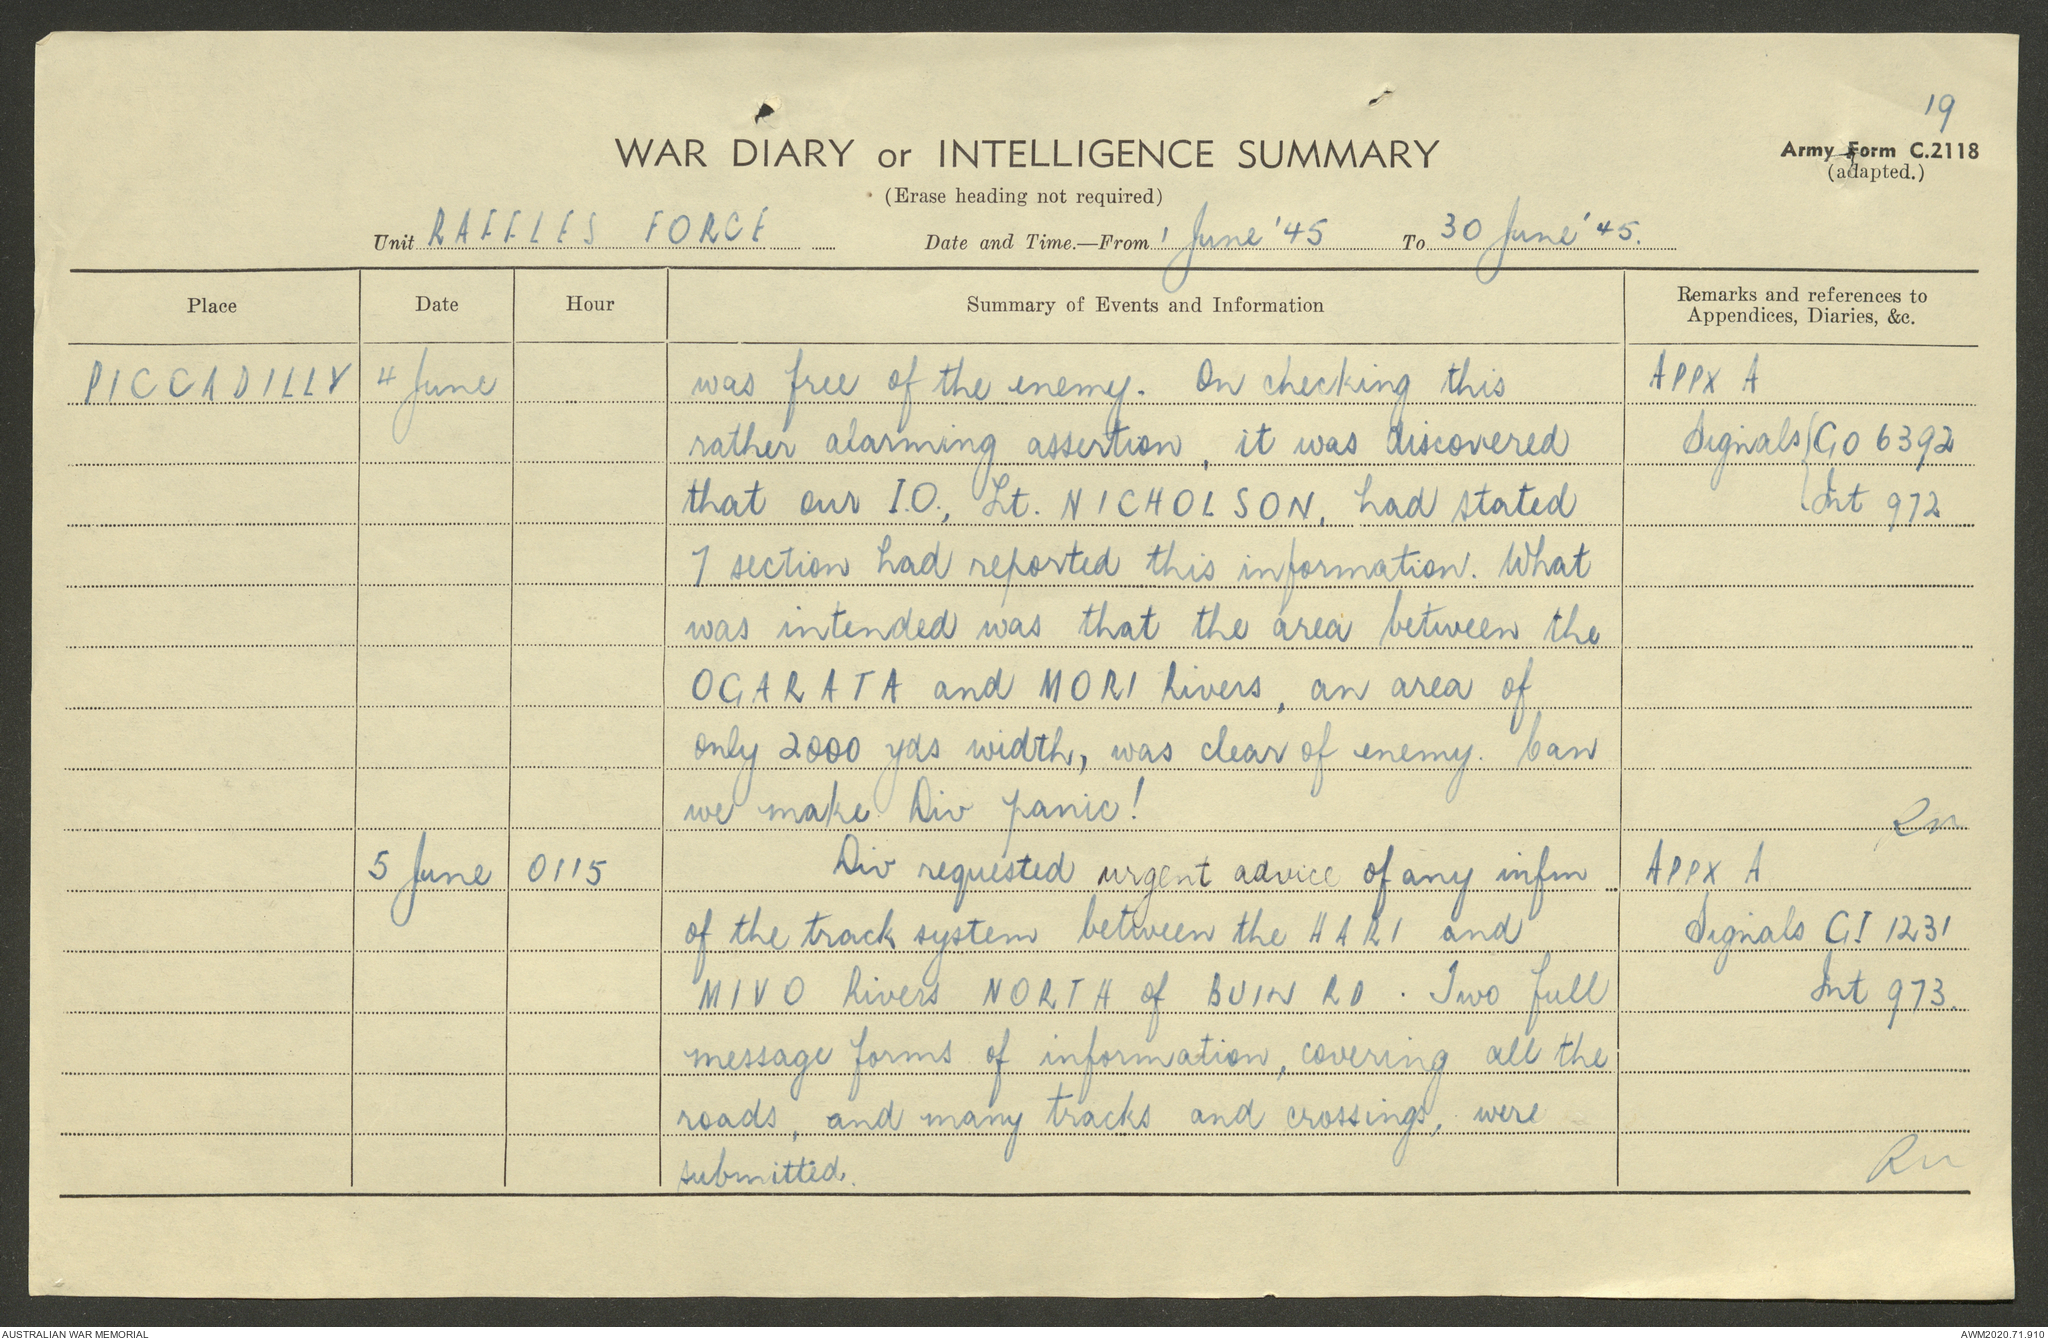 19
WAR DIARY or INTELLIGENCE SUMMARY
Army Form C.2118
(adapted.)
(Erase heading not required)
Unit RAFFLES FORCE Date and Time.—From 1 June '45 To 30 June '45.
Place Date Hour Summary of Events and Information Remarks and references to
Appendices, Diaries, &c.
PICCADILLY 4 June was free of the enemy. On checking this APPX A
rather alarming assertion, it was discovered Signals GO 6392
that our I.O., Lt. NICHOLSON, had stated Int 972
7 section had reported this information. What
was intended was that the area between the
OGARATA and MORI Rivers, an area of
only 2000 yds width, was clear of enemy. Can
we make Div panic! Rn
5 June 0115 Div requested urgent advice of any infm APPX A
of the track system between the HARI and Signals GI 1231
MIVO Rivers NORTH of BUIN RD. Two full Int 973.
message forms of information, covering all the
roads, and many tracks and crossings, were
submitted. Rn
AUSTRALIAN WAR MEMORIAL AWM2020.71.910